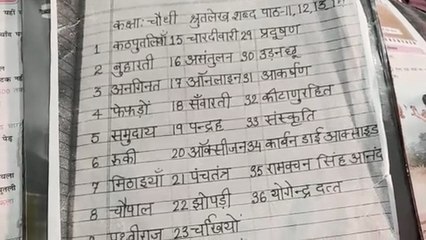 कक्षा: चौथी श्रुतलेख शब्द पाठ-11, 12, 13
1 कठपुतलियाँ 15 चारदीवारी 29 प्रदूषण
2 बुहारती 16 असंतुलन 30 उड़नछू
3 अनगिनत 17 ऑनलाइन 31 आकर्षण
4 फेफड़ों 18 सँवारती 32 कीटाणुरहित
5 समुदाय 19 पन्द्रह 33 संस्कृति
6 रुकी 20 ऑक्सीजन 34 कार्बन डाई आक्साइड
7 मिठाइयाँ 21 पंचतंत्र 35 रामवचन सिंह आनंद
8 चौपाल 22 झोपड़ी 36 योगेन्द्र दत्त
पृथ्वीराज 23 चर्खियों